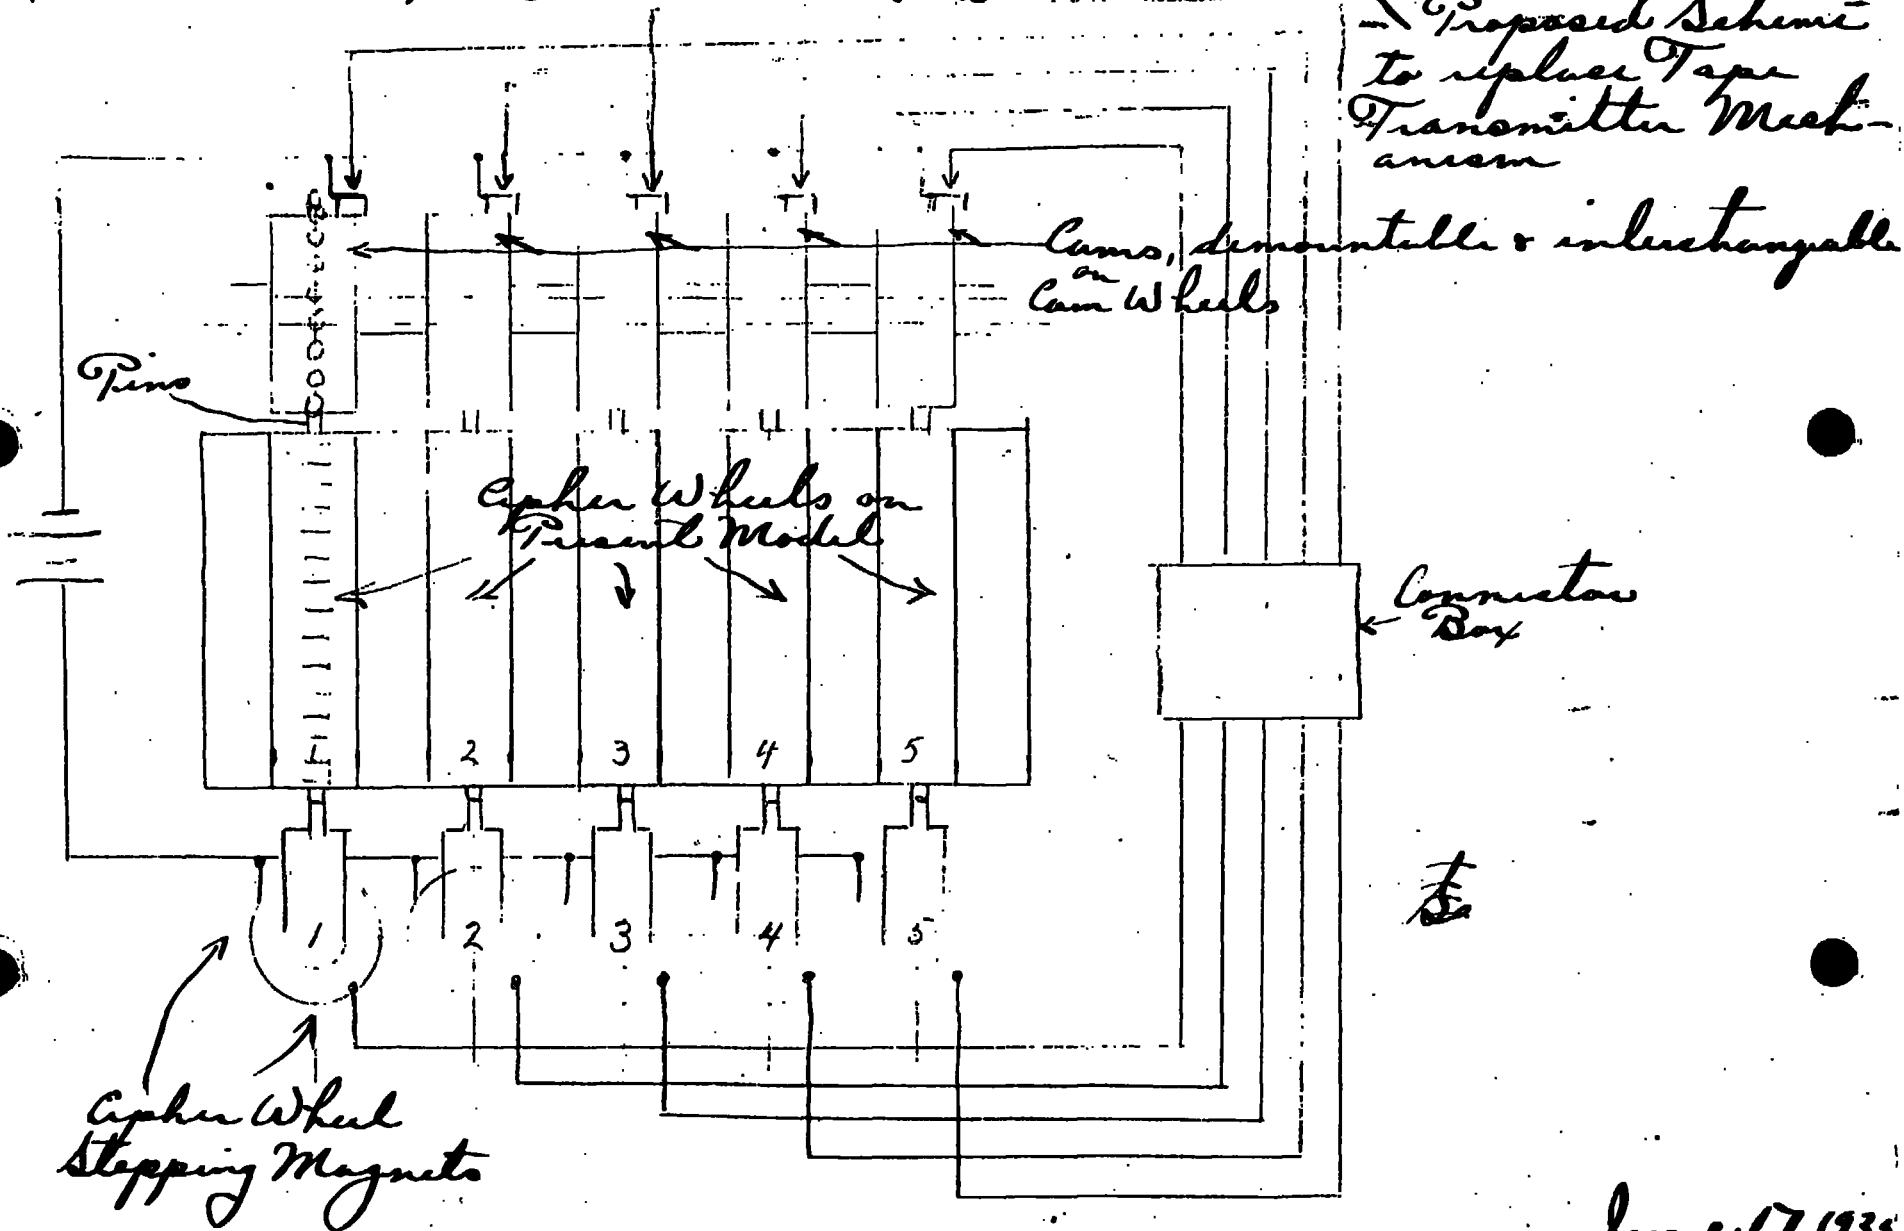 Proposed Scheme
to replace Tape
Transmitter Mech-
anism
Cams, demountable & interchangable
on
Cam Wheels
Pins
Cipher Wheels on
Present Model
Connector
Box
1 2 3 4 5
1 2 3 4 5
Cipher Wheel
Stepping Magnets